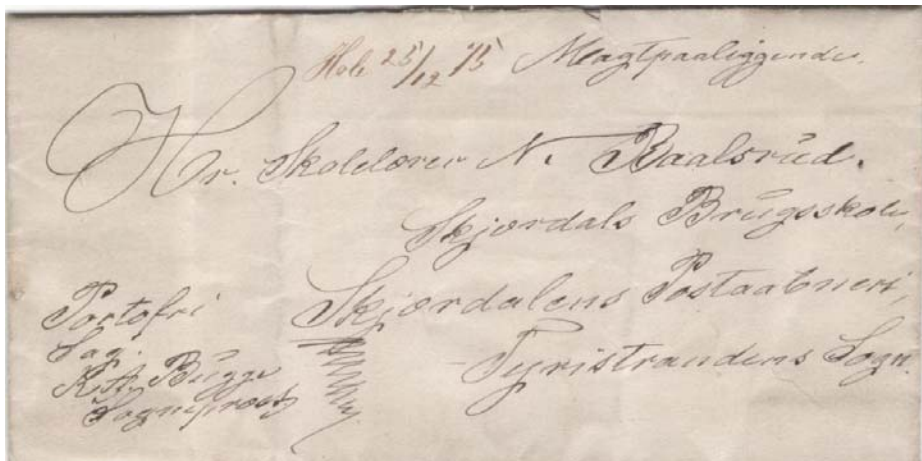 Hole 25/12 75 Magtpaaliggende.
Hr. Skolelærer N. Baalsrud.
Skjærdals Brugsskole,
Skjærdalens Postaabneri,
Tyristrandens Sogn.
Portofri
Sag.
K. A. Bugge
Sogneprest